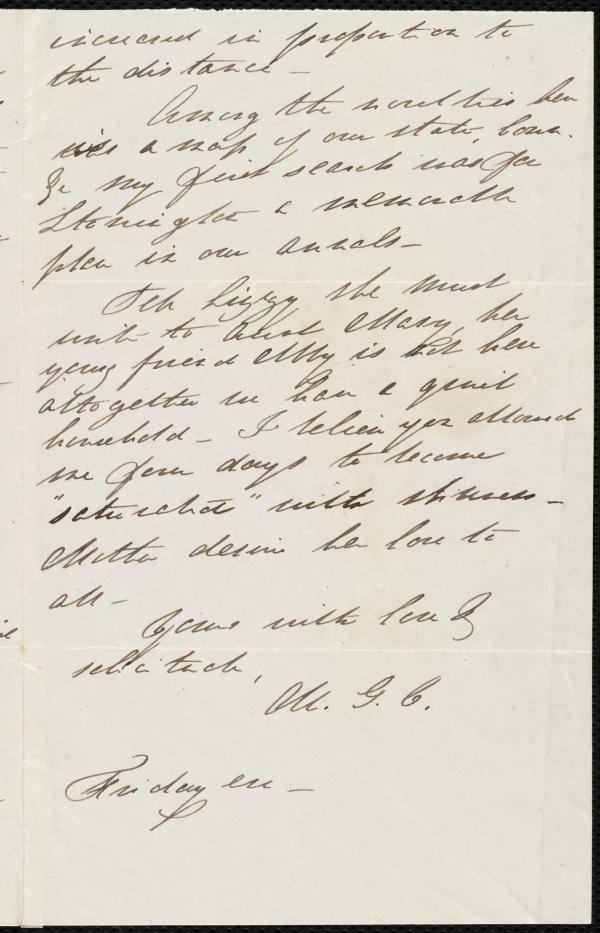 increased in proportion to
the distance -
Among the novelties here
was a map of our state, town.
& my first search was for
Stonington a memorable
place in our annals -
Tell Lizzy she must
write to Aunt Mary, her
young friend Abby is not here
altogether we have a quiet
household - I believe you allowed
me four days to become
"saturated" with stillness -
Mother desires her love to
all -
Yours with love &
solicitude,
M. G. C.
Friday eve -